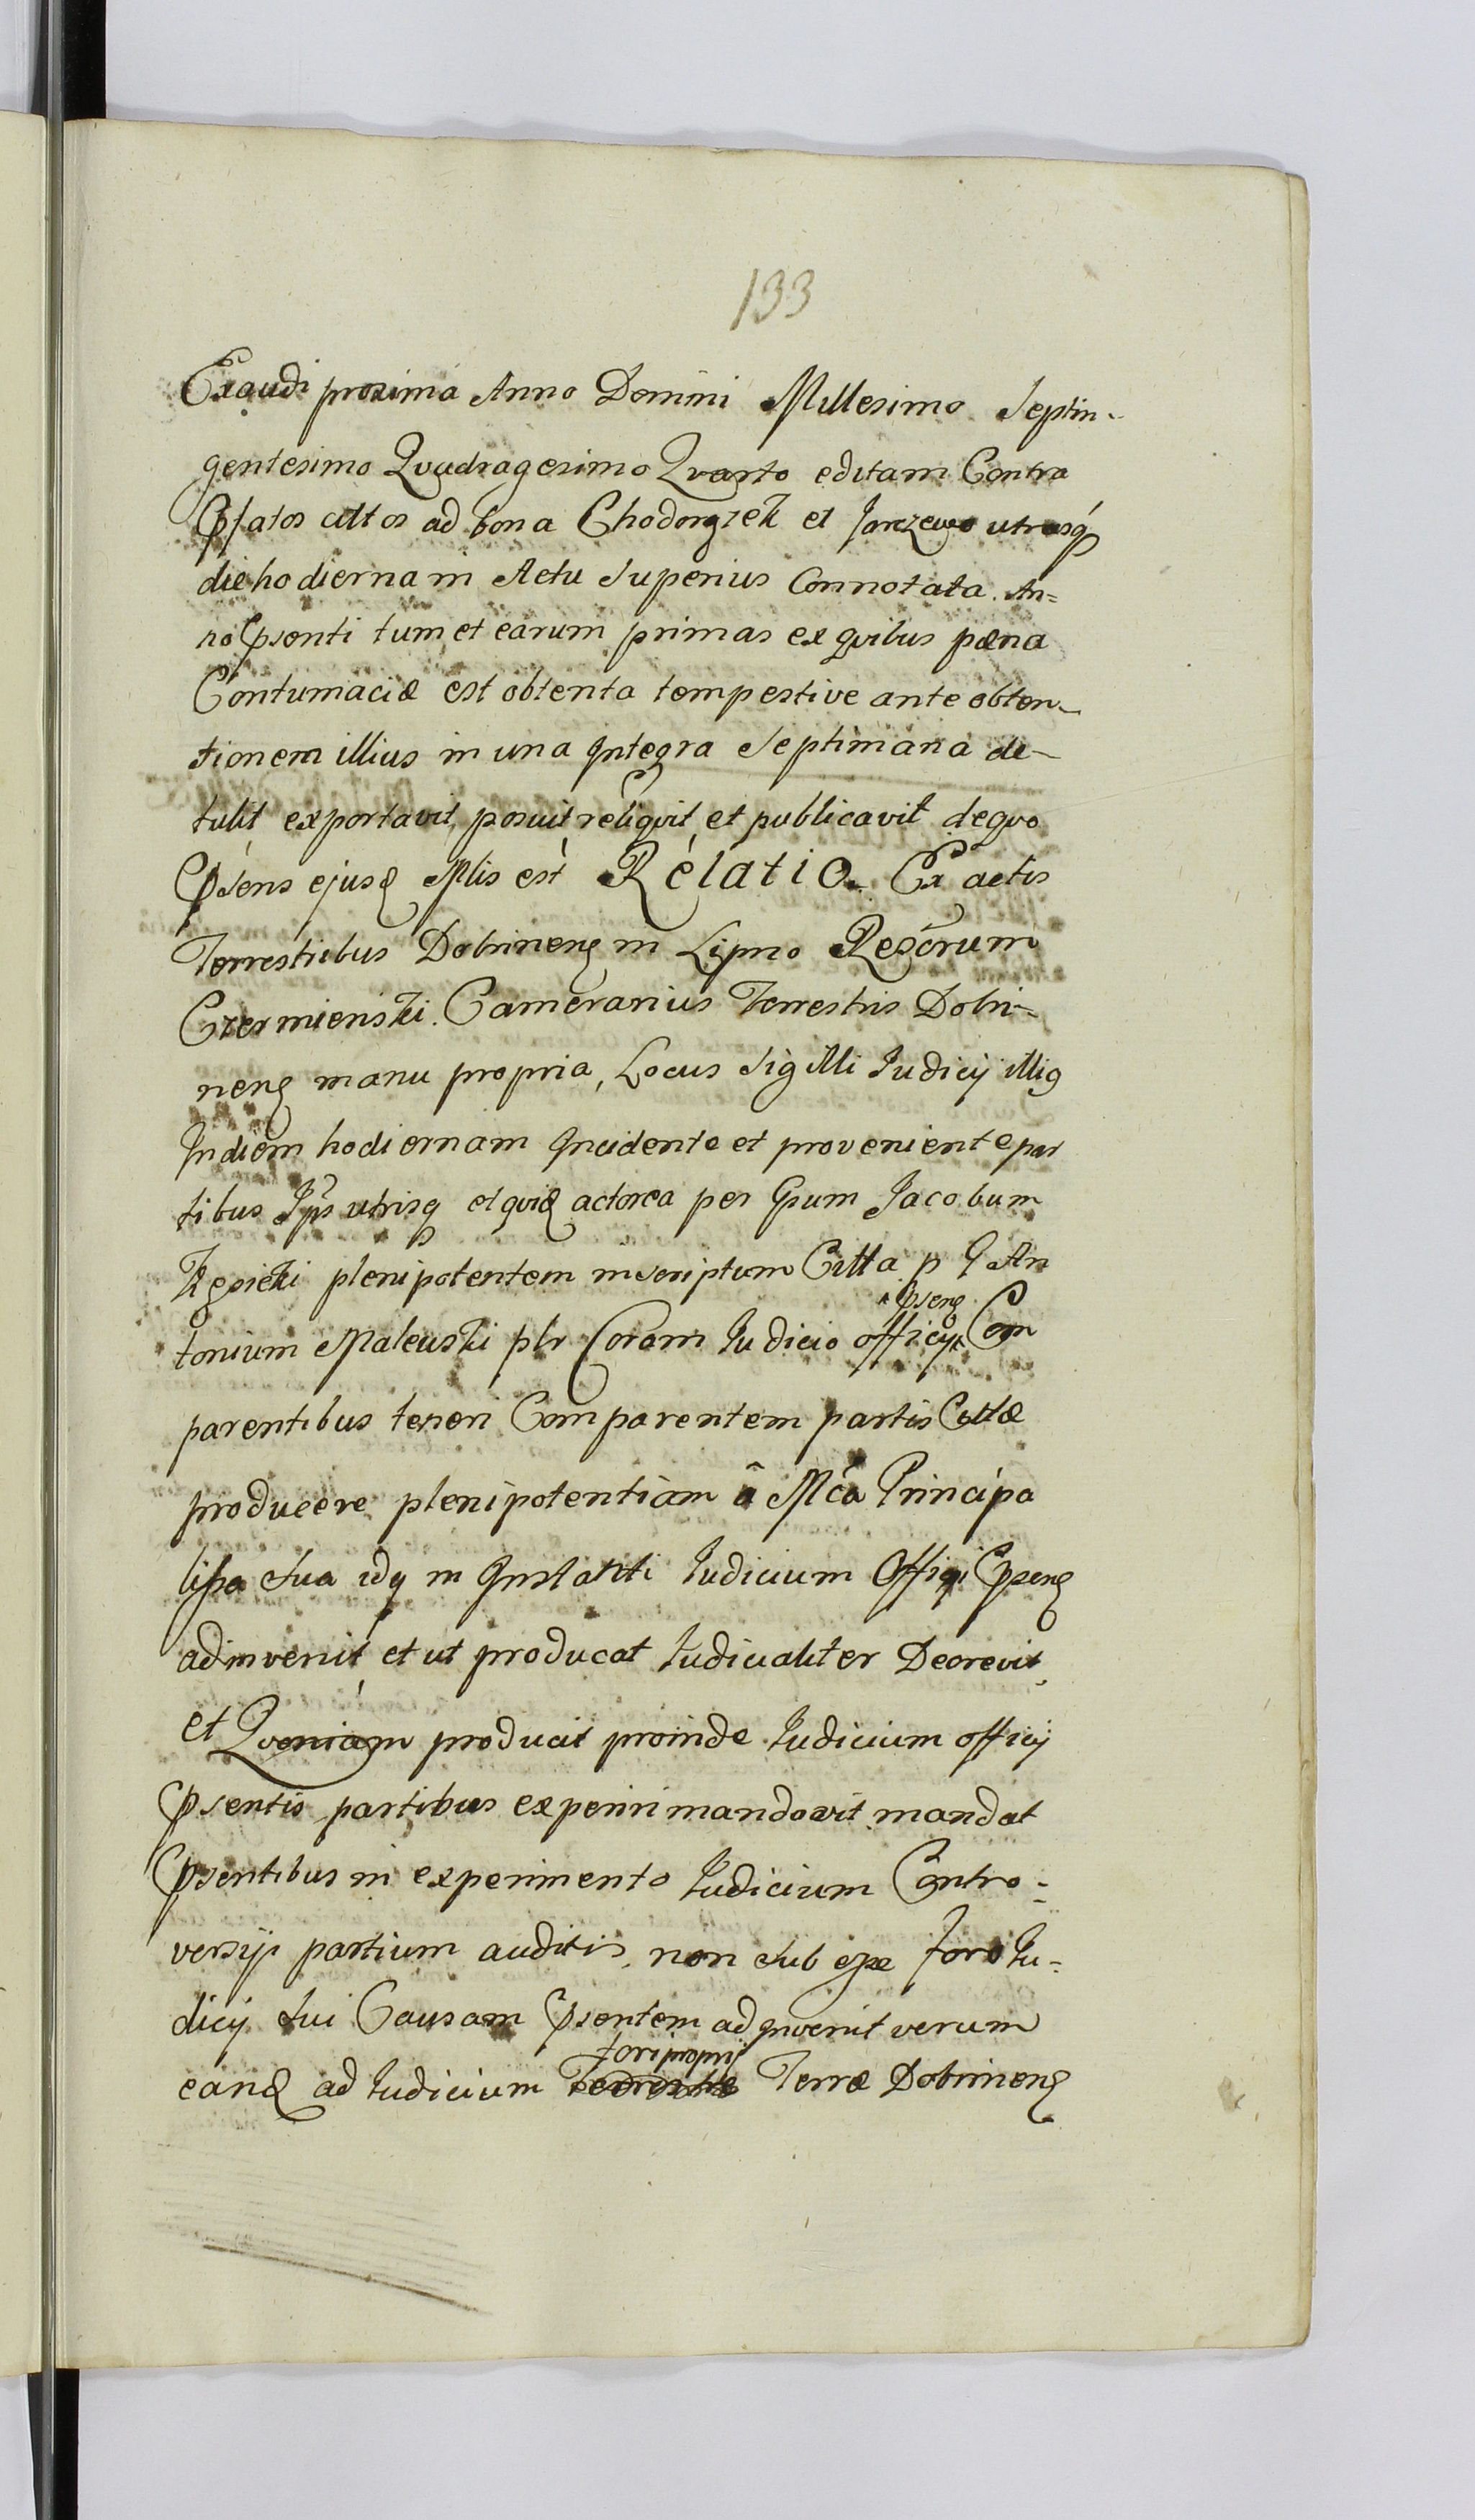 133
Exaudi proxima Anno Domini Millesimo Septin-
gentesimo Qvadragesimo Qvarto editam Contra
Psatos cittos ad bona Chodorązek et Janczewo utrasq
die hodierna in Actu Superius Connotata. An=
no Psenti tum et earum primas ex qvibus pæna
Contumaciæ est obtenta tempestive ante obten-
tionem illius in una Integra Septimana de-
tulit exportavit, posuit reliqvit, et publicavit deqvo
Psens ejusd Mlis est Relatio. Ex actis
Terrestribus Dobrinens in Lipno Rescrum
Czermienski Camerarius Terrestris Dobri-
nens manu propria, Locus Sigilli Judicij illig
In diem hodiernam Incidente et proveniente par
tibus Ips utrisq et qvid actorea per Gsum Jacobum
plenipotentem inscriptum Citta p G An
Psens
tonium Maleuski plr Coram Judicio officij Com
parentibus teneri Comparentem partis Cittæ
producere plenipotentiam â Mca Principa
lissa Sua idq in Instanti Judicium Officij Psens
adinvenit, et ut producat Judicialiter Decrevit
et Qvoniam producit proinde Judicium officij
Psentis partibus experiri mandavit mandat
Psentibus in experimento Judicium Contro-
versijs partium auditis, non Sub esse foro Ju-
dicij Sui Causam Psentem adinvenit verum
fori proprij
eand ad Judicium Terrestre Terræ Dobrinens